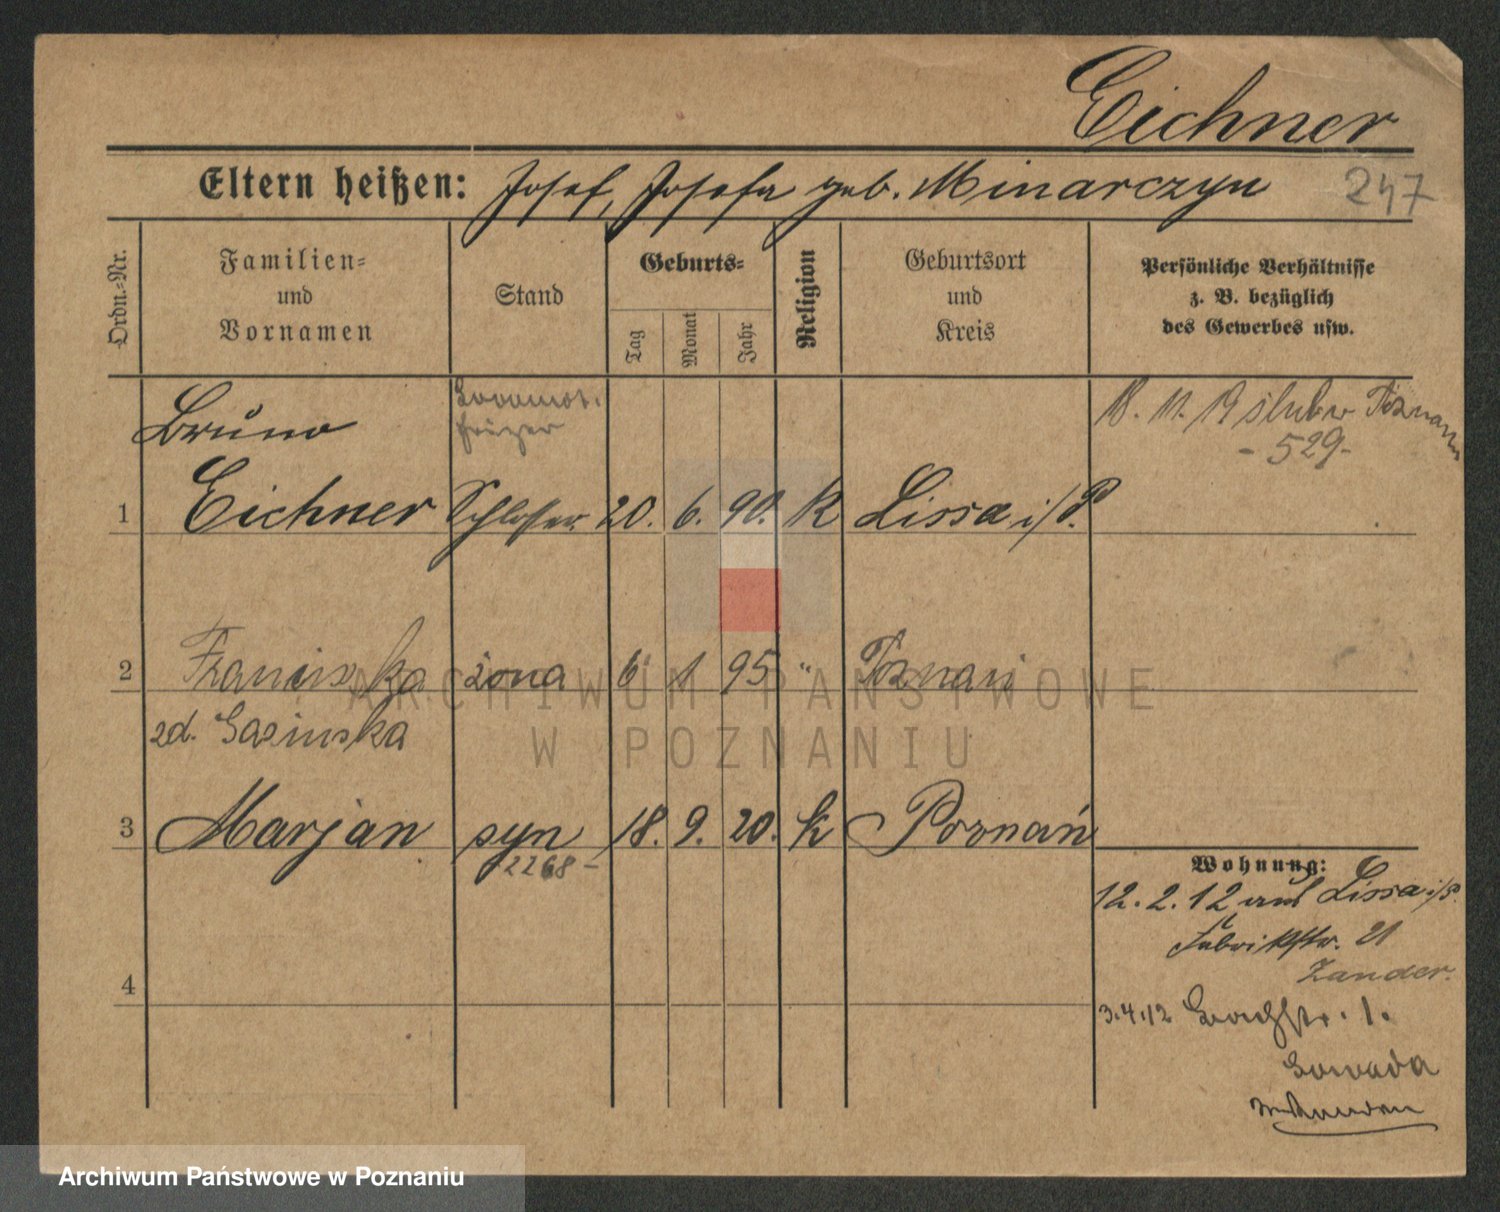 Eichner
Eltern heißen: Josef, Josefa geb. Minarczyn
247
Ordn.-Nr.
Familien-
und
Vornamen
Stand
Geburts-
Tag
Monat
Jahr
Religion
Geburtsort
und
Kreis
Persönliche Verhältnisse
z. B. bezüglich
des Gewerbes usw.
Bruno
Locomot.
heizer
18. 11. 19 ślub w Poznaniu
- 529 -
1 Eichner Schlosser 20. 6. 90. k Lissa i/P.
2 Franciszka żona 6 1 95 " Poznań
zd. Gazinska
3 Marjan syn 18. 9. 20. k Poznań
2268 -
Wohnung:
12. 2. 12 aus Lissa i/P.
Fabrikstr. 21
Zander.
4
3.4.12
1.
ARCHIWUM PAŃSTWOWE
W POZNANIU
Archiwum Państwowe w Poznaniu